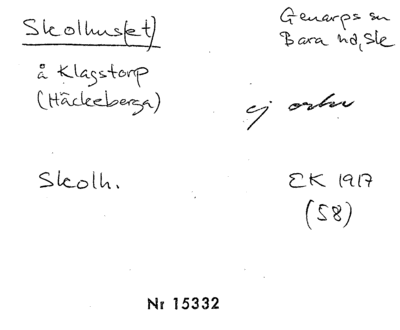 Skolhus(et)
Genarps sn
Bara hd, Sk
å Klagstorp
(Häckeberga)
ej orhv
Skolh.
EK 1917
(58)
Nr 15332